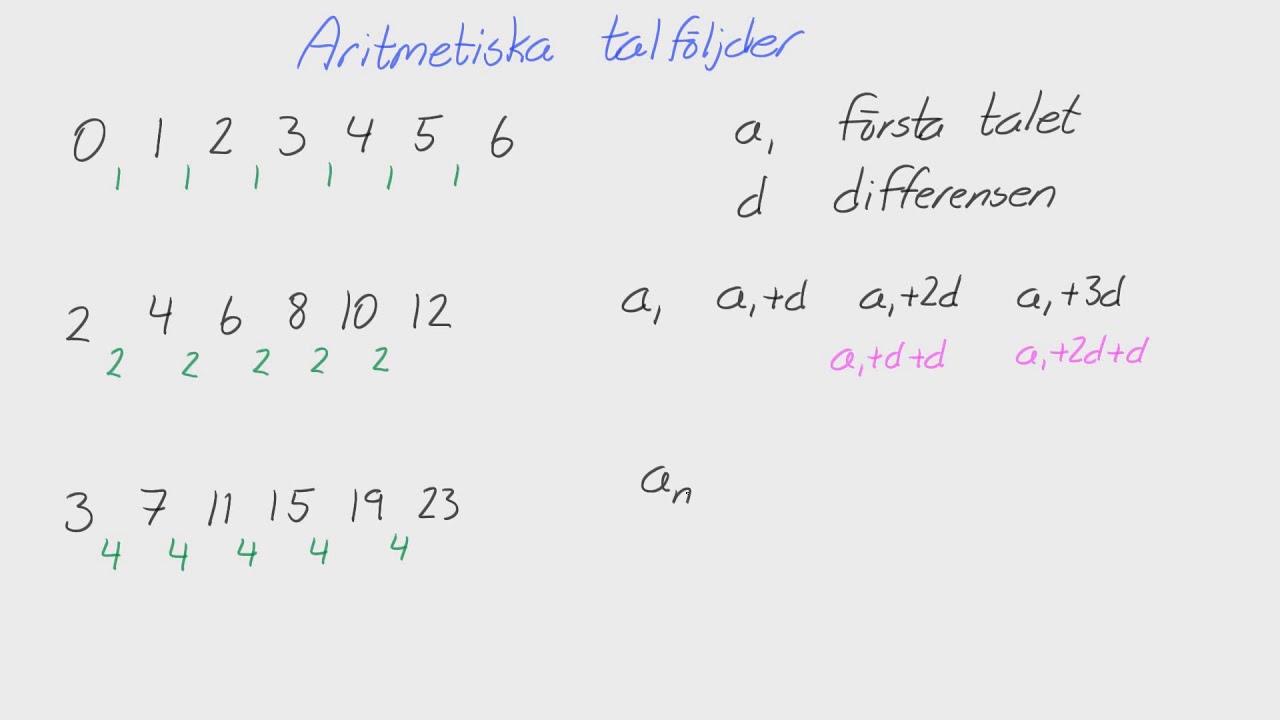 Aritmetiska talföljder
0 1 2 3 4 5 6
1 1 1 1 1 1
a₁ första talet
d differensen
2 4 6 8 10 12
2 2 2 2 2
a₁ a₁+d a₁+2d a₁+3d
a₁+d+d a₁+2d+d
3 7 11 15 19 23
4 4 4 4 4
aₙ